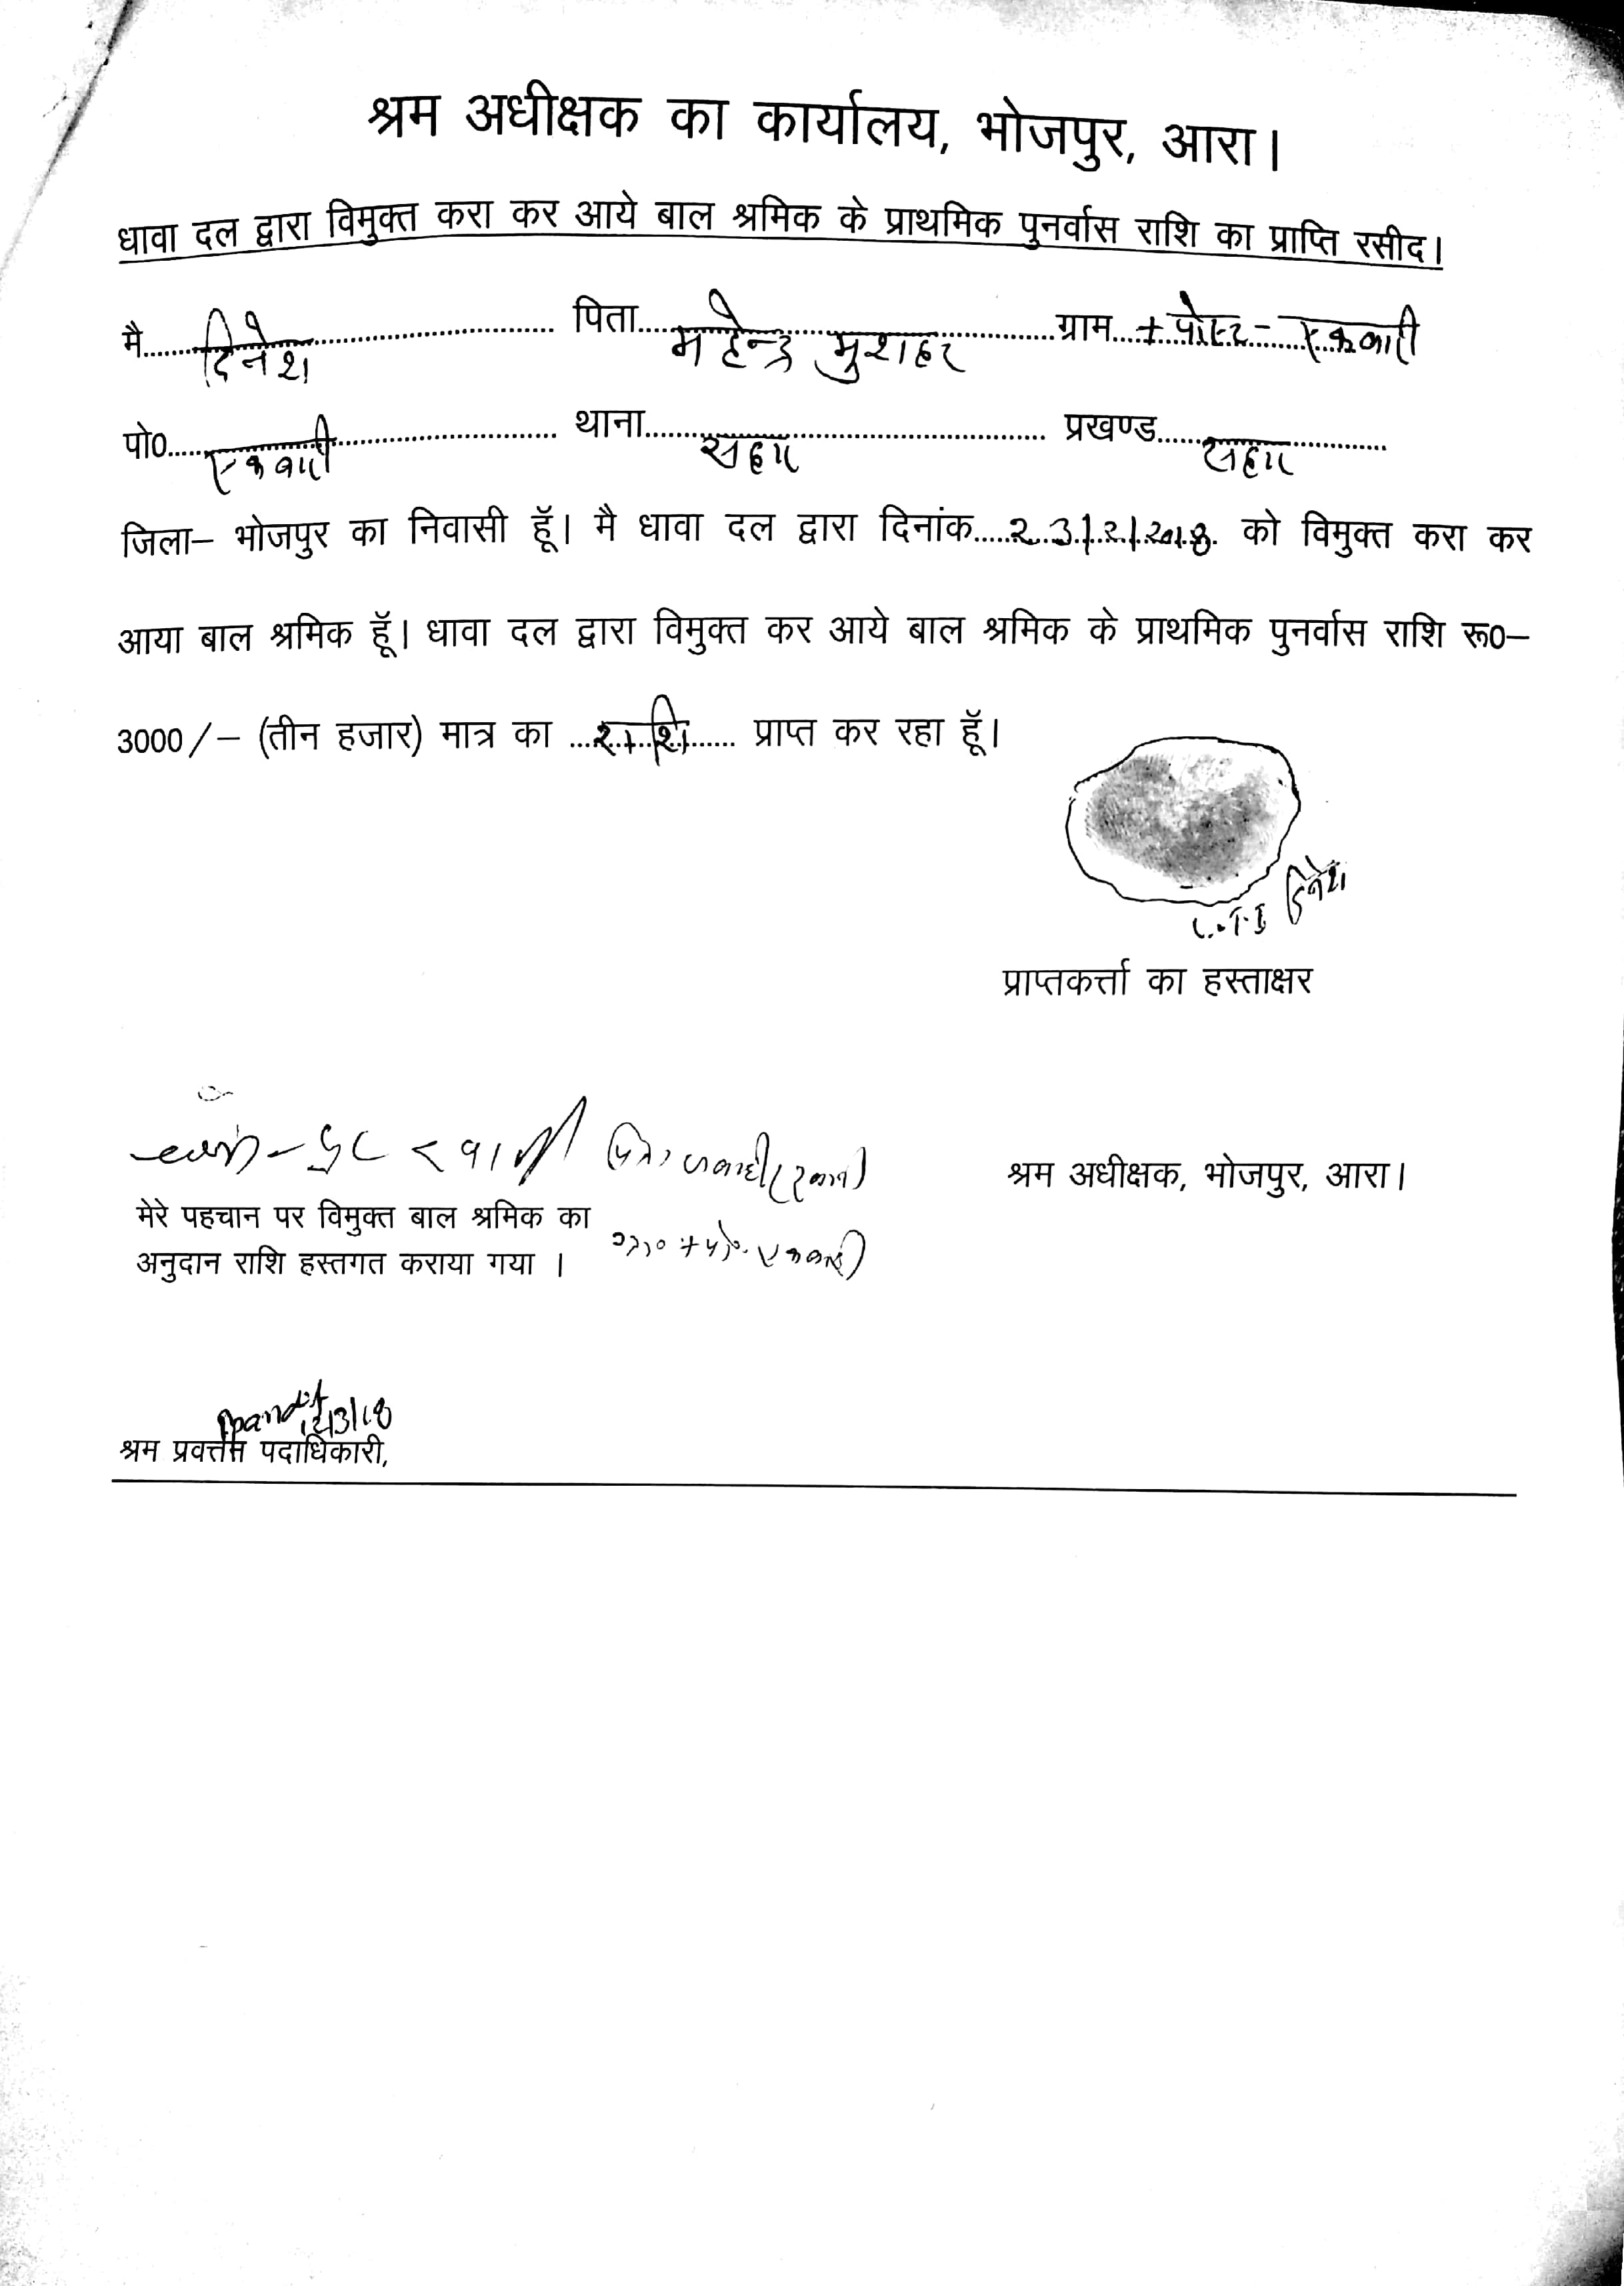 श्रम अधीक्षक का कार्यालय, भोजपुर, आरा।
धावा दल द्वारा विमुक्त करा कर आये बाल श्रमिक के प्राथमिक पुनर्वास राशि का प्राप्ति रसीद।
मै......दिनेश...... पिता......महेन्द्र मुशहर......ग्राम...+ पोस्ट - एकवारी
पो0......एकवारी...... थाना......सहार...... प्रखण्ड......सहार......
जिला– भोजपुर का निवासी हूँ। मै धावा दल द्वारा दिनांक.....23/2/2018. को विमुक्त करा कर
आया बाल श्रमिक हूँ। धावा दल द्वारा विमुक्त कर आये बाल श्रमिक के प्राथमिक पुनर्वास राशि रू0–
3000/– (तीन हजार) मात्र का ...राशि...... प्राप्त कर रहा हूँ।
L.T.I दिनेश
प्राप्तकर्त्ता का हस्ताक्षर
श्रम अधीक्षक, भोजपुर, आरा।
मेरे पहचान पर विमुक्त बाल श्रमिक का
ग्रा० + पो०- एकवारी
अनुदान राशि हस्तगत कराया गया ।
12/3/18
श्रम प्रवर्त्तन पदाधिकारी,